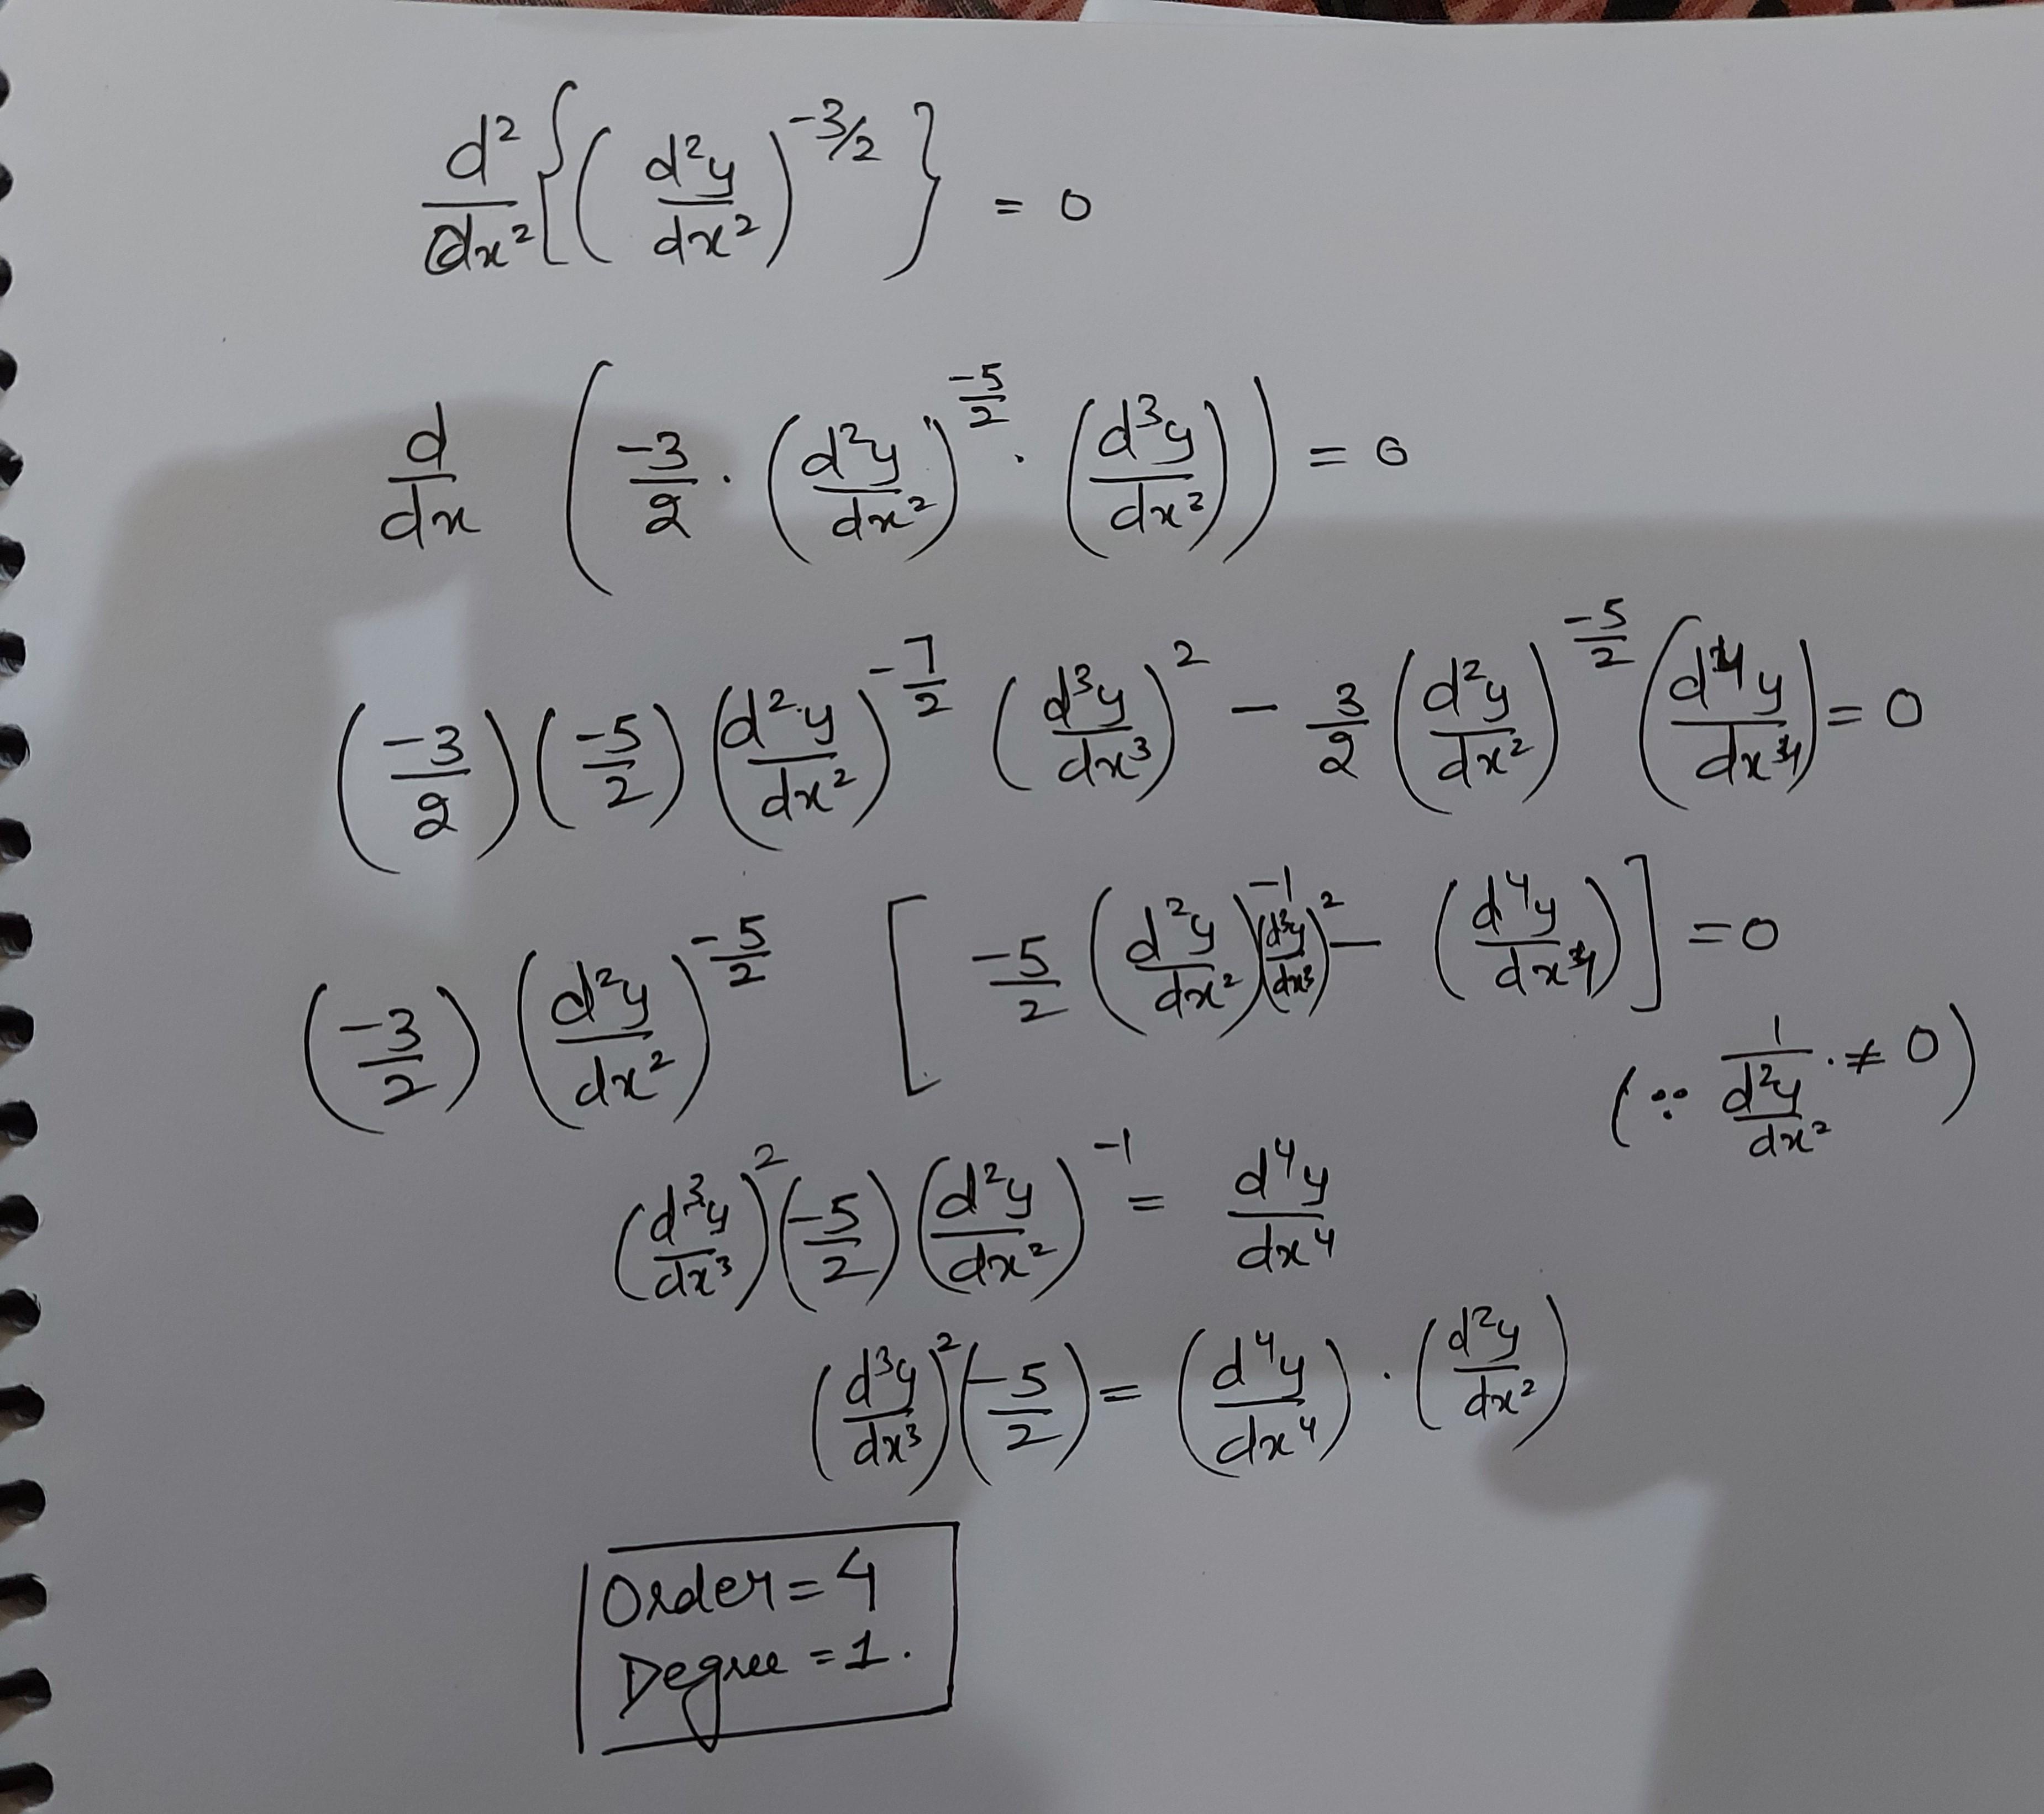 d²/dx² {(d²y/dx²)^(-3/2)} = 0
d/dx (-3/2 · (d²y/dx²)^(-5/2) · (d³y/dx²)) = 0
(-3/2)(-5/2)(d²y/dx²)^(-7/2) (d³y/dx³)² - 3/2 (d²y/dx²)^(-5/2) (d⁴y/dx⁴) = 0
(-3/2)(d²y/dx²)^(-5/2) [-5/2 (d²y/dx²)^(-1) (d³y/dx³)² - (d⁴y/dx⁴)] = 0
(∵ 1/(d²y/dx²) · ≠ 0)
(d³y/dx³)² (-5/2) (d²y/dx²)^(-1) = d⁴y/dx⁴
(d³y/dx³)² (-5/2) = (d⁴y/dx⁴) · (d²y/dx²)
Order = 4
Degree = 1.